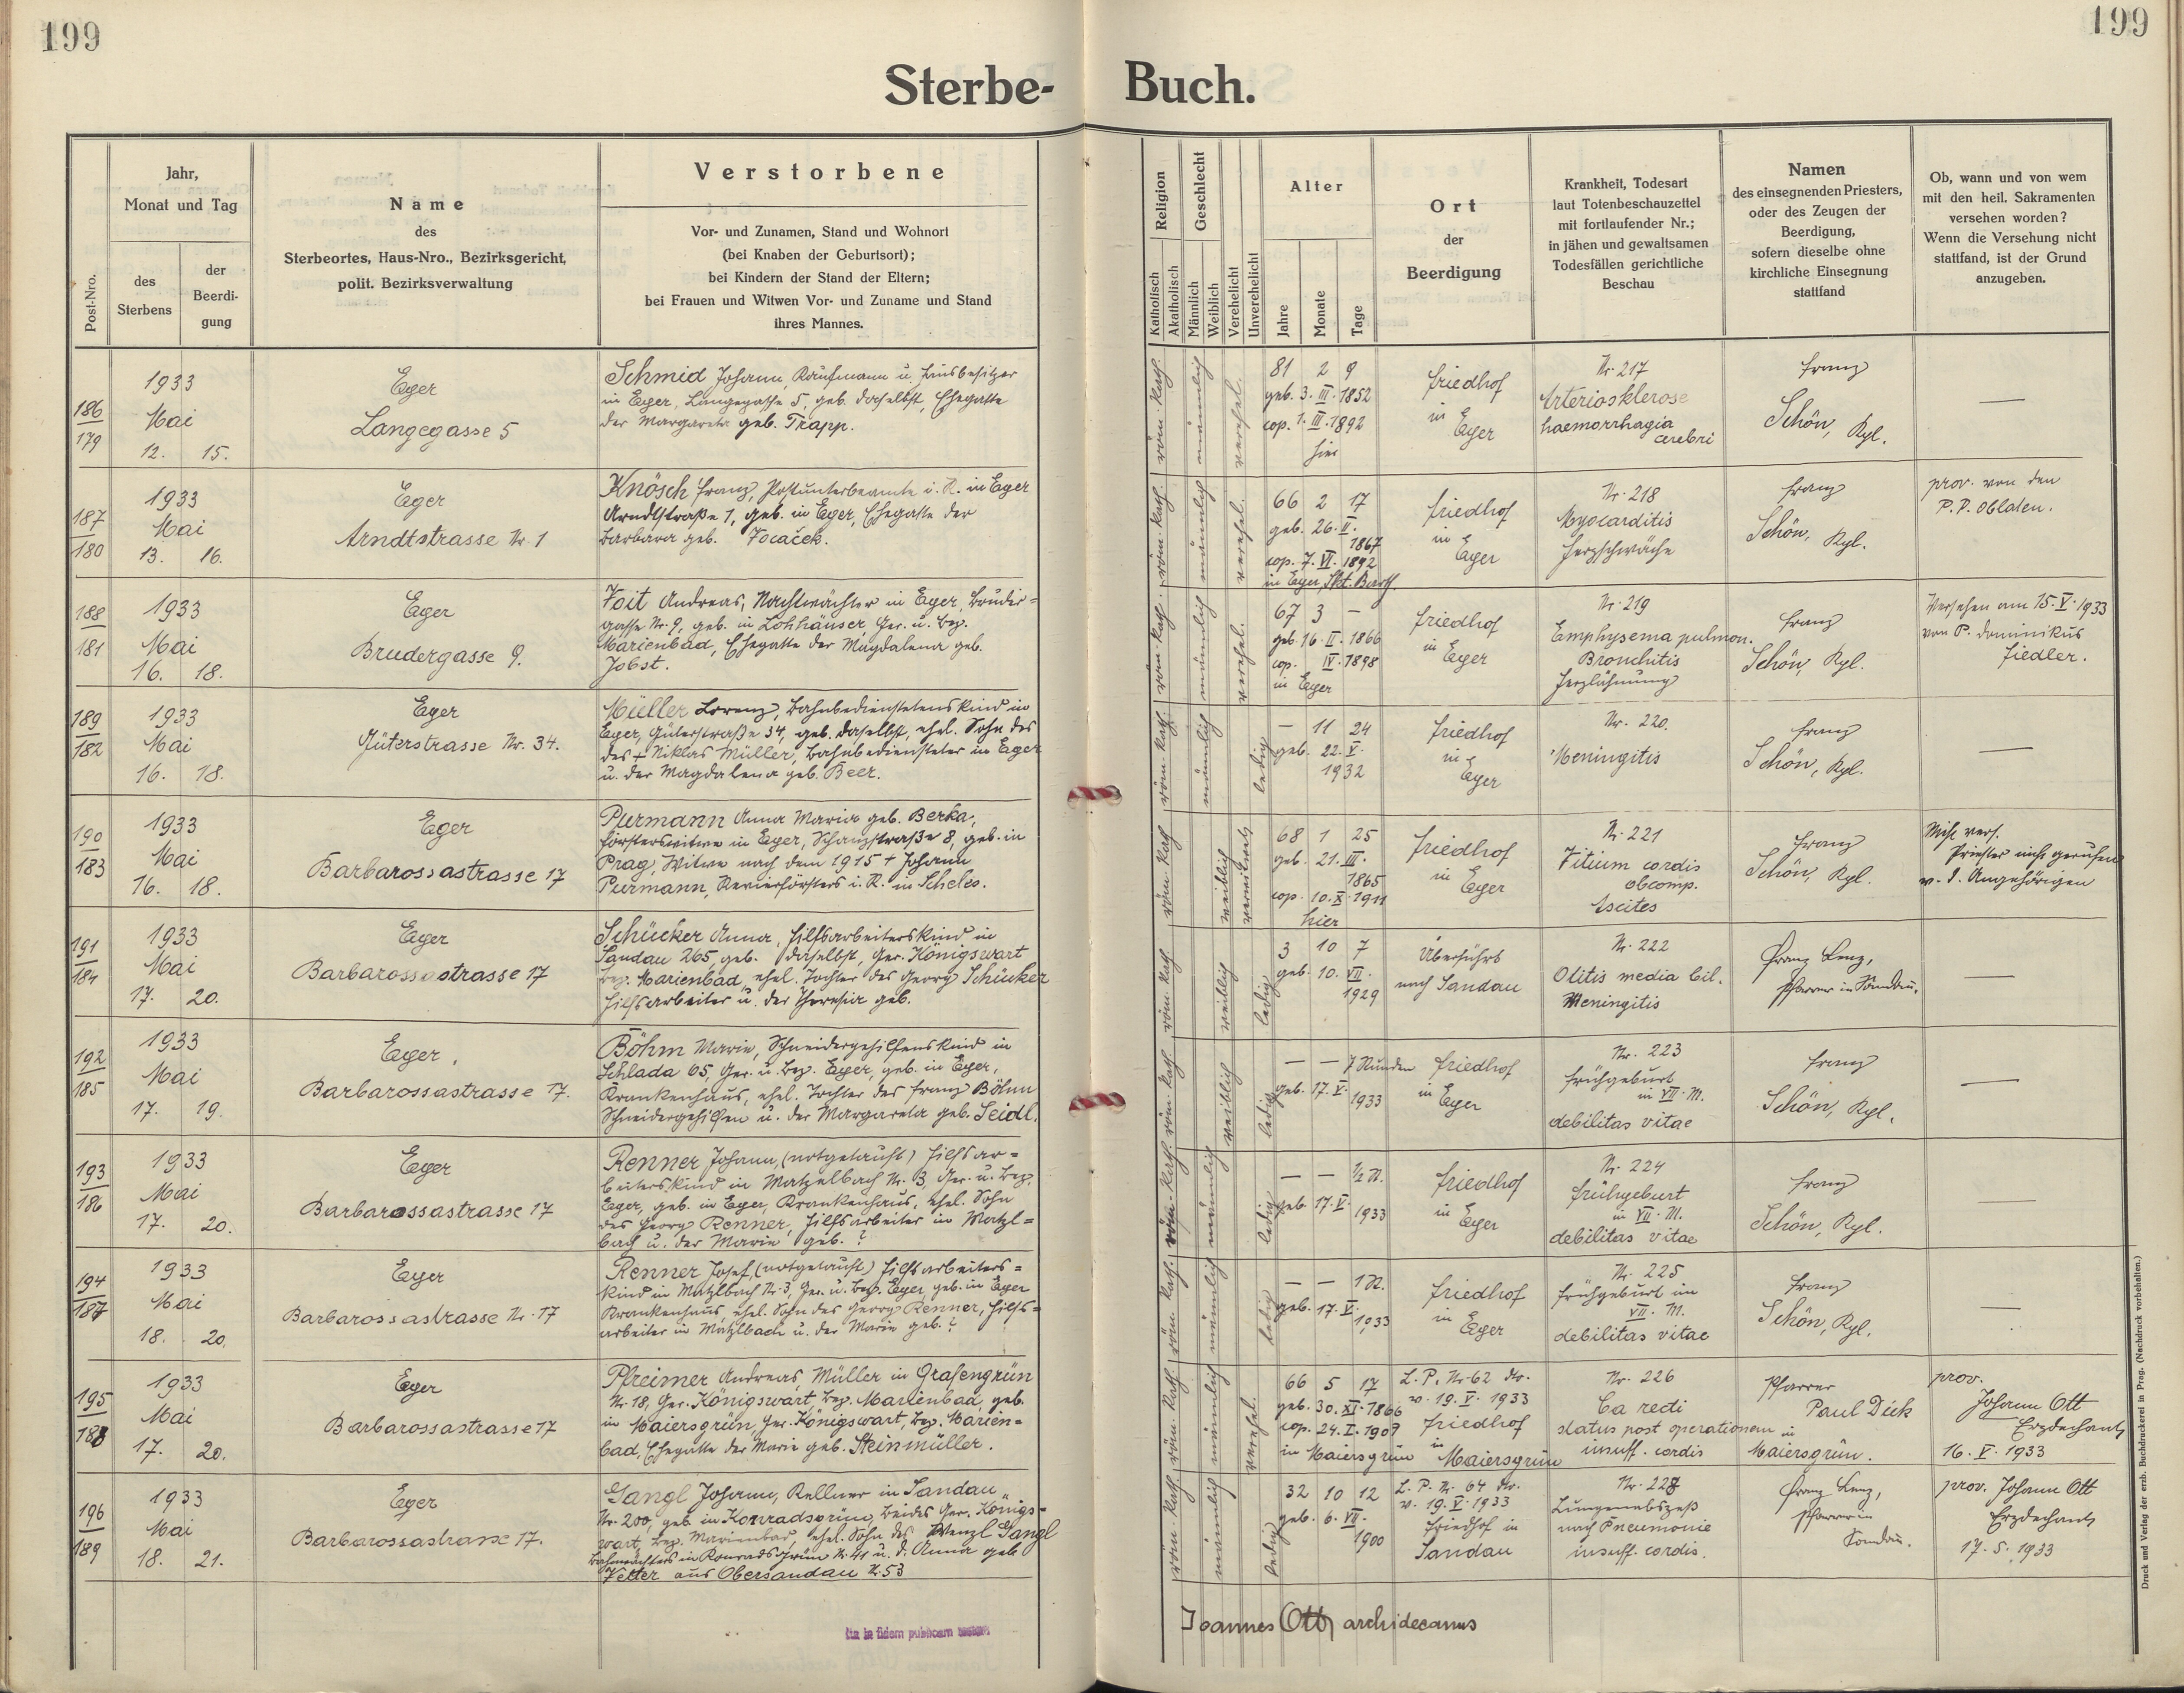 199
199
Sterbe-
Buch.
Post-Nro.
Jahr,
Monat und Tag
des
Sterbens
der
Beerdi-
gung
Name
des
Sterbeortes, Haus-Nro., Bezirksgericht,
polit. Bezirksverwaltung
Verstorbene
Vor- und Zunamen, Stand und Wohnort
(bei Knaben der Geburtsort);
bei Kindern der Stand der Eltern;
bei Frauen und Witwen Vor- und Zuname und Stand
ihres Mannes.
Religion
Katholisch
Akatholisch
Geschlecht
Männlich
Weiblich
Verehelicht
Unverehelicht
Alter
Jahre
Monate
Tage
Ort
der
Beerdigung
Krankheit, Todesart
laut Totenbeschauzettel
mit fortlaufender Nr.;
in jähen und gewaltsamen
Todesfällen gerichtliche
Beschau
Namen
des einsegnenden Priesters,
oder des Zeugen der
Beerdigung,
sofern dieselbe ohne
kirchliche Einsegnung
stattfand
Ob, wann und von wem
mit den heil. Sakramenten
versehen worden?
Wenn die Versehung nicht
stattfand, ist der Grund
anzugeben.
186
179
1933
Mai
12. 15.
Eger
Langegasse 5
Schmid Johann, Kaufmann u. Hausbesitzer
in Eger, Langegasse 5, geb. daselbst, Ehegatte
der Margareta geb. Trapp.
röm. kath.
männlich
verehel.
81 2 9
geb. 3. III. 1852
cop. 1. III. 1892
hier
Friedhof
in
Eger
Nr. 217
Arteriosklerose
haemorrhagia
cerebri
Franz
Schön, Kpl.
—
187
180
1933
Mai
13. 16.
Eger
Arndtstrasse Nr. 1
Knösch Franz, Postunterbeamte i. R. in Eger
Arndtstraße 1, geb. in Eger, Ehegatte der
Barbara geb. Focaček.
röm. kath.
männlich
verehel.
66 2 17
geb. 26. II.
1867
cop. 7. VI. 1892
in Eger, Skt. Barth.
Friedhof
in
Eger
Nr. 218
Myocarditis
Herzschwäche
Franz
Schön, Kpl.
prov. von den
P. P. Oblaten.
188
181
1933
Mai
16. 18.
Eger
Brudergasse 9.
Voit Andreas, Nachtwächter in Eger, Bruder=
gasse Nr. 9, geb. in Lohhäuser Ger. u. Bez.
Marienbad, Ehegatte der Magdalena geb.
Jobst.
röm. kath.
männlich
verehel.
67 3 —
geb. 16. II. 1866
cop. IV. 1898
in Eger
Friedhof
in
Eger
Nr. 219
Emphysema pulmon.
Bronchitis
Herzlähmung
Franz
Schön, Kpl.
Versehen am 15. V. 1933
von P. Dominikus
Fiedler.
189
182
1933
Mai
16. 18.
Eger
Güterstrasse Nr. 34.
Müller Lorenz, Bahnbedienstetenskind in
Eger, Güterstraße 34, geb. daselbst, ehel. Sohn des
des + Niklas Müller, Bahnbediensteter in Eger
u. der Magdalena geb. Beer.
röm. kath.
männlich
ledig
— 11 24
geb. 22. V.
1932
Friedhof
in
Eger
Nr. 220.
Meningitis
Franz
Schön, Kpl.
—
190
183
1933
Mai
16. 18.
Eger
Barbarossastrasse 17
Purmann Anna Maria geb. Berka,
Försterswitwe in Eger, Schanzstraße 8, geb. in
Prag, Witwe nach dem 1915 + Johann
Purmann, Revierförsters i. R. in Scheles.
röm. kath.
weiblich
verwitwet
68 1 25
geb. 21. III.
1865
cop. 10. X. 1911
hier
Friedhof
in
Eger
Nr. 221
Vitium cordis
obcomp.
Ascites
Franz
Schön, Kpl.
Nicht vers.
Priester nicht gerufen
v. d. Angehörigen
191
184
1933
Mai
17. 20.
Eger
Barbarossastrasse 17
Schücker Anna, Hilfsarbeiterskind in
Sandau 265, geb. daselbst, Ger. Königswart
Bez. Marienbad, ehel. Tochter des Georg Schücker
Hilfsarbeiter u. der Theresia geb.
röm. kath.
weiblich
ledig
3 10 7
geb. 10. VII.
1929
Überführt
nach Sandau
Nr. 222
Otitis media bil.
Meningitis
Franz Lenz,
Pfarrer in Sandau.
—
192
185
1933
Mai
17. 19.
Eger.
Barbarossastrasse 17.
Böhm Marie, Schneidergehilfenskind in
Schlada 65, Ger. u. Bez. Eger, geb. in Eger,
Krankenhaus, ehel. Tochter des Franz Böhm
Schneidergehilfen u. der Margareta geb. Seidl.
röm. kath.
weiblich
ledig
— — 7 Stunden
geb. 17. V.
1933
Friedhof
in Eger
Nr. 223
Frühgeburt
in VII. M.
debilitas vitae
Franz
Schön, Kpl.
—
193
186
1933
Mai
17. 20.
Eger
Barbarossastrasse 17
Renner Johann, (notgetauft) Hilfsar=
beiterskind in Matzelbach Nr. 3, Ger. u. Bez.
Eger, geb. in Eger, Krankenhaus, ehel. Sohn
des Georg Renner, Hilfsarbeiter in Matzl=
bach u. der Marie geb. ?
röm. kath.
männlich
ledig
— — ½ St.
geb. 17. V.
1933
Friedhof
in
Eger
Nr. 224
Frühgeburt
in VII. M.
debilitas vitae
Franz
Schön, Kpl.
—
194
187
1933
Mai
18. 20.
Eger
Barbarossastrasse Nr. 17
Renner Josef, (notgetauft) Hilfsarbeiters=
kind in Matzlbach Nr. 3, Ger. u. Bez. Eger, geb. in Eger
Krankenhaus, ehel. Sohn des Georg Renner, Hilfs=
arbeiter in Matzlbach u. der Marie geb. ?
röm. kath.
männlich
ledig
— — 1 St.
geb. 17. V.
1933
Friedhof
in
Eger
Nr. 225
Frühgeburt im
VII. M.
debilitas vitae
Franz
Schön, Kpl.
—
195
188
1933
Mai
17. 20.
Eger
Barbarossastrasse 17
Pfreimer Andreas Müller in Grafengrün
Nr. 18, Ger. Königswart, Bez. Marienbad, geb.
in Maiersgrün, Ger. Königswart, Bez. Marien=
bad, Ehegatte der Marie geb. Steinmüller.
röm. kath.
männlich
verehel.
66 5 17
geb. 30. XI. 1866
cop. 24. I. 1907
in Maiersgrün
L. P. Nr. 62
v. 19. V. 1933
Friedhof
in
Maiersgrün
Nr. 226
Ca recti
status post operationem
insuff. cordis
Pfarrer
Paul Dick
in
Maiersgrün.
prov.
Johann Ott
Erzdechant
16. V. 1933
196
189
1933
Mai
18. 21.
Eger
Barbarossastrasse 17.
Gangl Johann, Kellner in Sandau
Nr. 200, geb. in Konradsgrün, beides Ger. Königs=
wart, Bez. Marienbad, ehel. Sohn des Wenzl Gangl
Bahnwächters in Konradsgrün Nr. 41 u. d. Anna geb.
Vetter aus Obersandau N. 53
röm. kath.
männlich
ledig
32 10 12
geb. 6. VII.
1900
L. P. Nr. 64
v. 19. V. 1933
Friedhof in
Sandau
Nr. 228
Lungenabszeß
nach Pneumonie
insuff. cordis.
Franz Lenz,
Pfarrer in
Sandau.
prov. Johann Ott
Erzdechant
17. 5. 1933
Ita in fidem publicam
Joannes Ott archidecanus
Druck und Verlag der erzb. Buchdruckerei in Prag. (Nachdruck vorbehalten.)